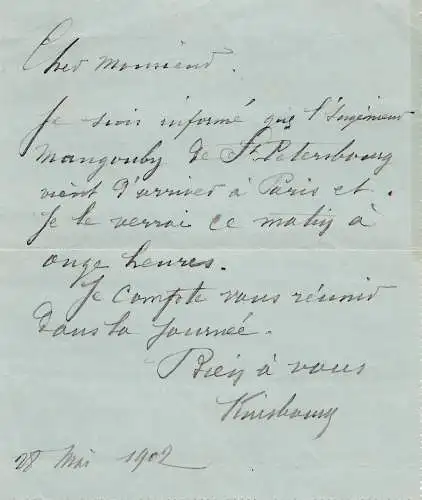 Cher Monsieur.
Je suis informé que l'Ingénieur
Mangouby de St Petersbourg
vient d'arriver à Paris et.
Je le verrai ce matin à
onze heures.
Je compte vous réunir
dans la journée.
Bien à vous
Kinsbourg
28 Mai 1902